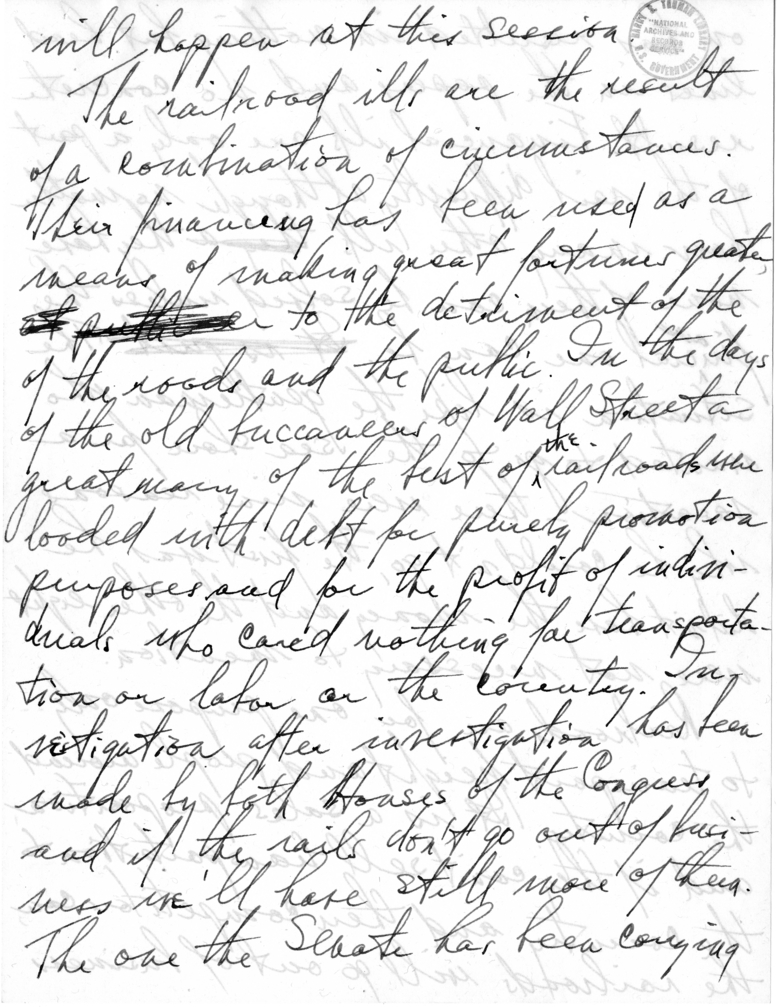 will happen at this session
HARRY S. TRUMAN LIBRARY
"NATIONAL
ARCHIVES AND
RECORDS
SERVICE"
U.S. GOVERNMENT
The railroad ills are the result
of a combination of circumstances.
Their financing has been used as a
means of making great fortunes greater,
to the detriment of the
of the roads and the public. In the days
of the old buccaneers of Wall Street a
great many of the best of the railroads were
loaded with debt for purely promotion
purposes and for the profit of indivi-
duals who cared nothing for transporta-
tion or labor or the country. In-
vistigation after investigation has been
made by both Houses of the Congress
and if the rails don't go out of busi-
ness we'll have still more of them.
The one the Senate has been carrying